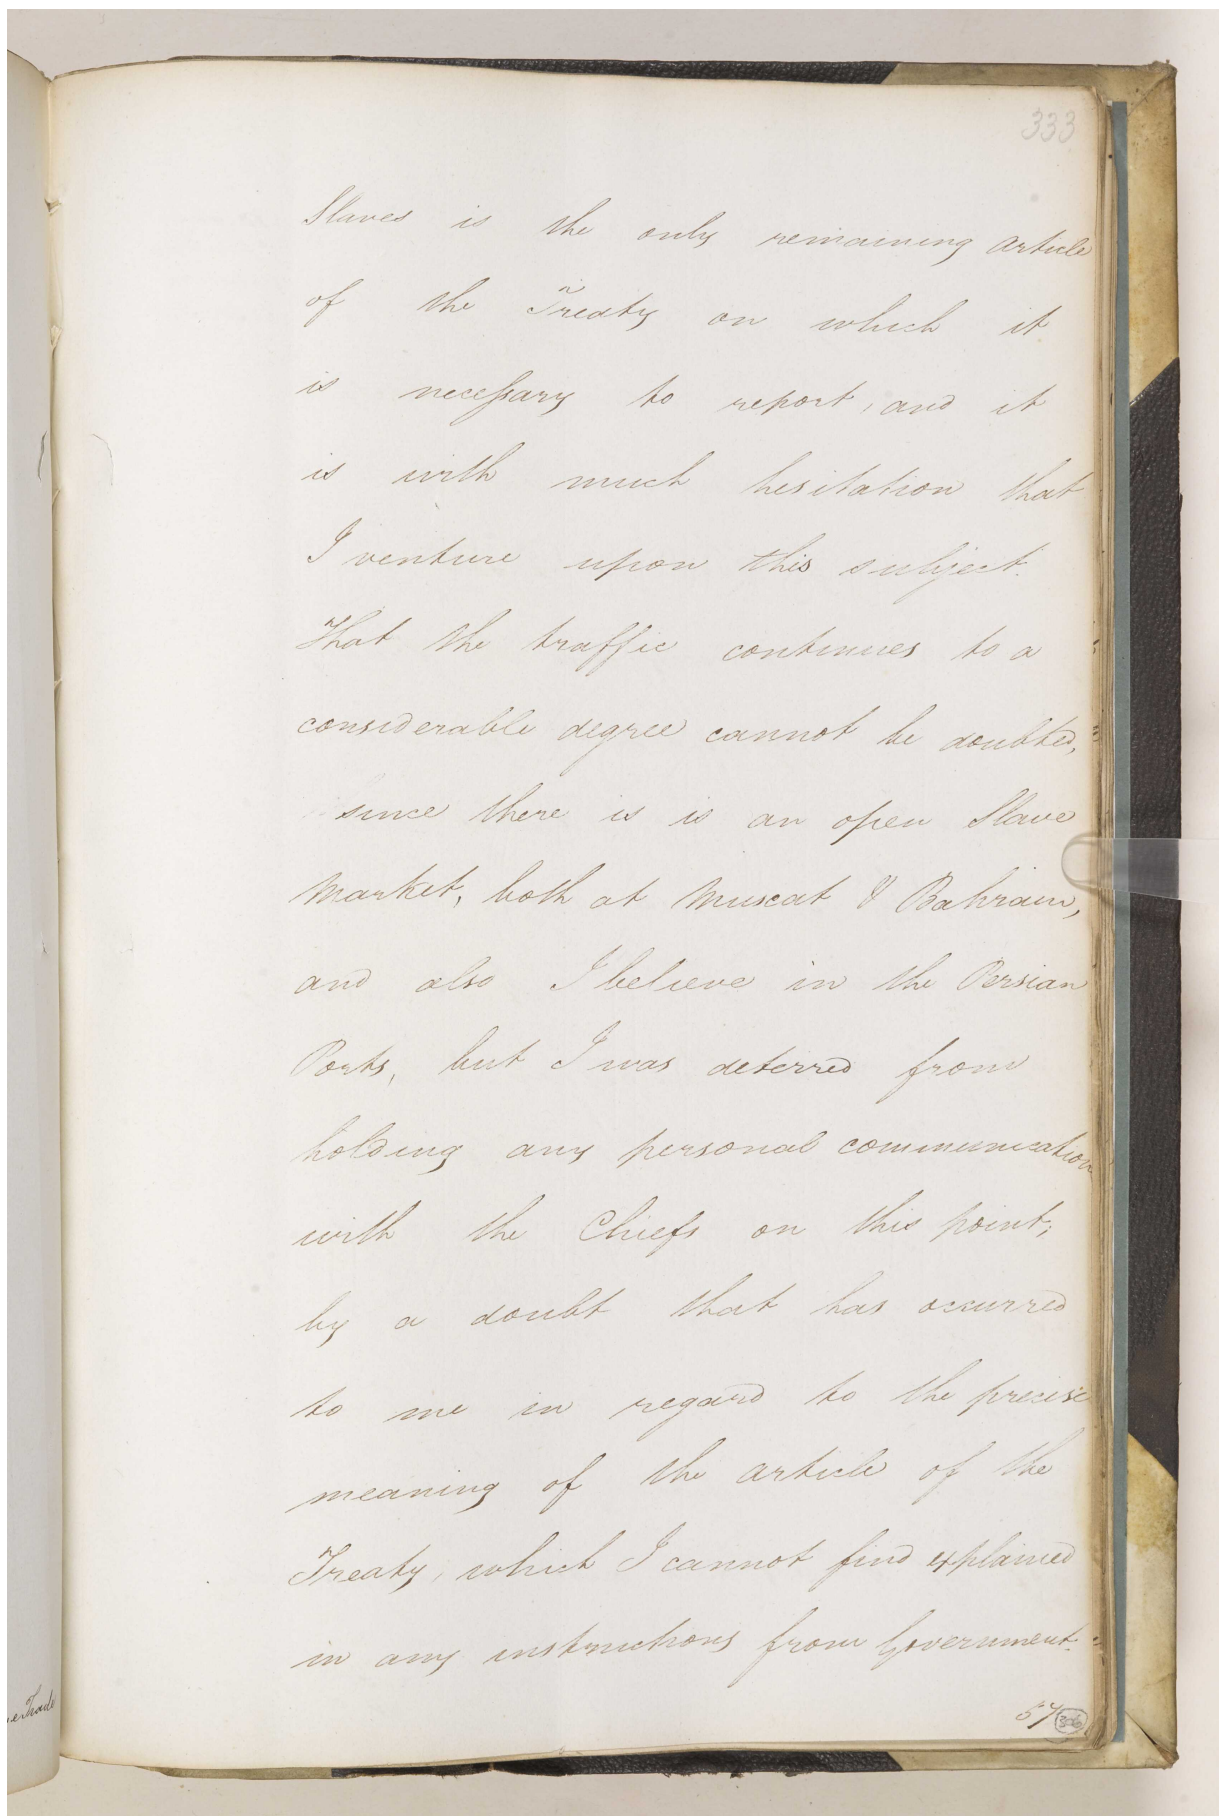 333
Slaves is the only remaining article
of the Treaty on which it
is necessary to report, and it
is with much hesitation that
I venture upon this subject.
That the traffic continues to a
considerable degree cannot be doubted,
since there is is an open Slave
Market, both at Muscat & Bahrain,
and also I believe in the Persian
Ports, but I was deterred from
holding any personal communication
with the Chiefs on this point;
by a doubt that has occurred
to me in regard to the precise
meaning of the article of the
Treaty, which I cannot find explained
in any instructions from Government.
57
306
e Trade